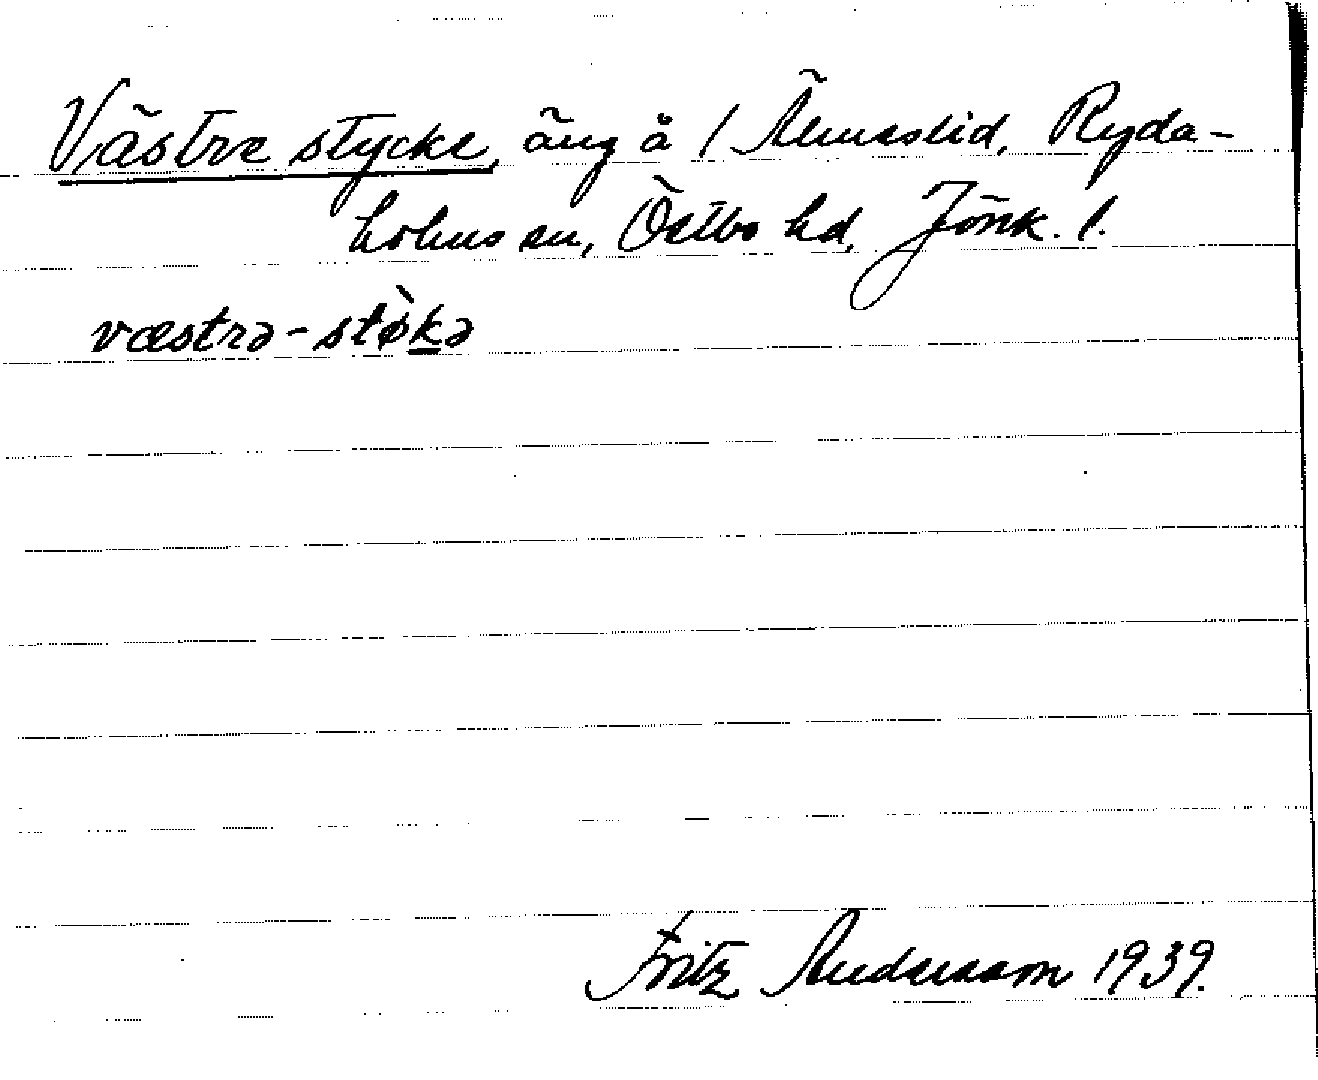 Västre stycke, äng å / Älmeslid, Ryda-
holms sn, Östbo hd, Jönk. l.
væstrə-stø̀kə
Fritz Andersson 1939.